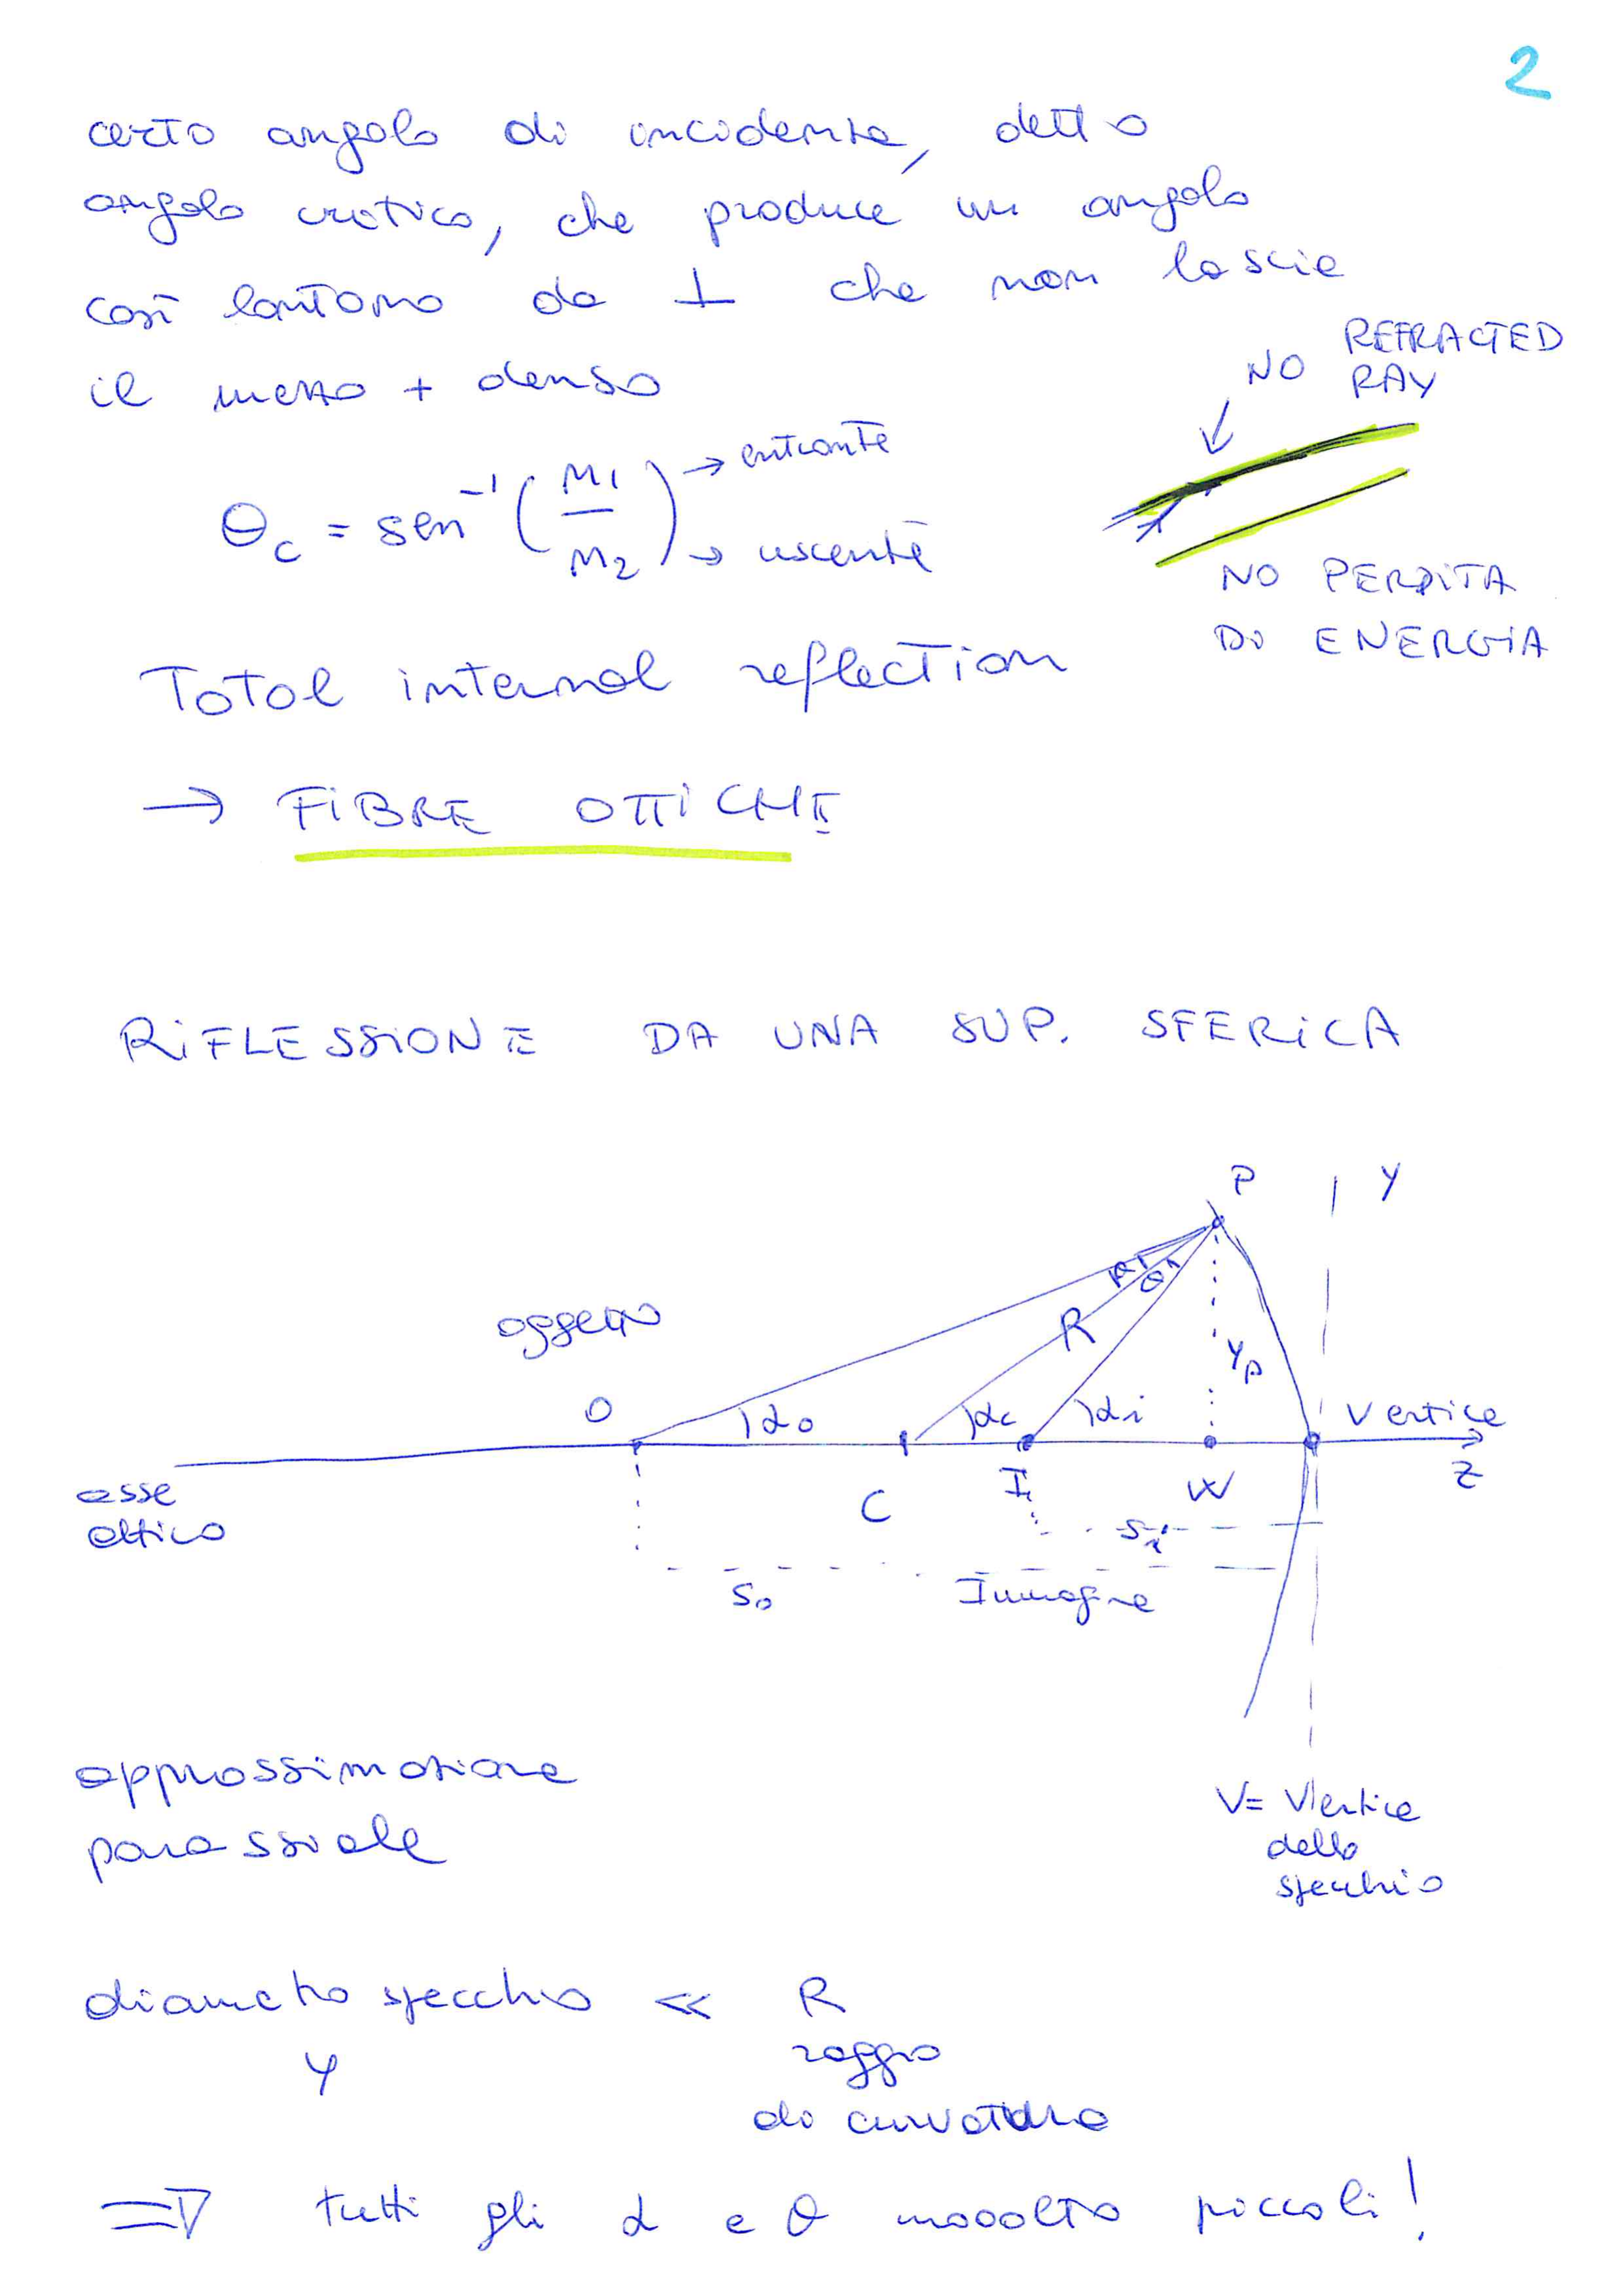 2
certo angolo di incidenza, detto
angolo critico, che produce un angolo
così lontano da ⊥ che non lascia
il mezzo + denso
NO REFRACTED
RAY
θc = sen⁻¹ (n1/n2) → entrante
→ uscente
NO PERDITA
DI ENERGIA
Total internal reflection
→ FIBRE OTTICHE
RIFLESSIONE DA UNA SUP. SFERICA
P y
θ
oggetto R yp
O αo αc αi Vertice
asse C I W z
ottico
si
so Immagine
approssimazione
parassiale
V = Vertice
dello
specchio
diametro specchio << R
y raggio
di curvatura
⇒ tutti gli α e θ mooolto piccoli!